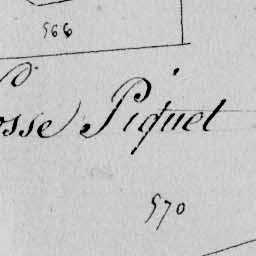 566
osse Piquet
570